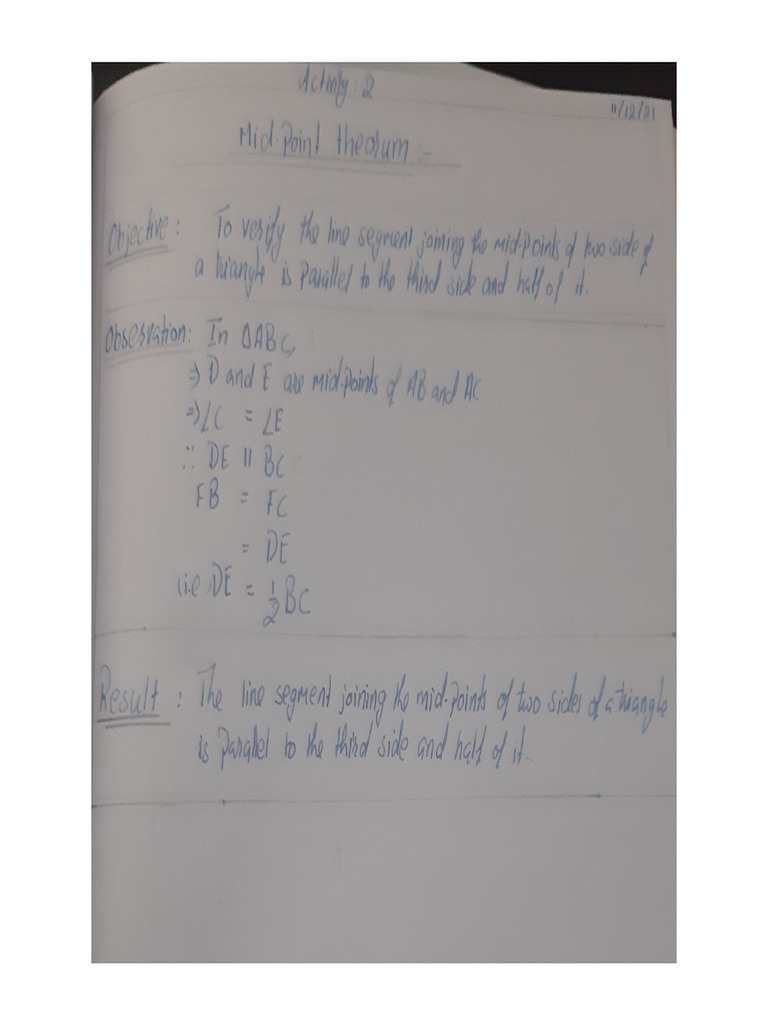 Activity: 2
11/12/21
Mid-Point theorum :-
Objective : To verify the line segment joining the mid-points of two side of
a triangle is parallel to the third side and half of it.
Observation: In ΔABC,
⇒ D and E are mid-points of AB and AC
⇒ ∠C = ∠E
∴ DE || BC
FB = FC
= DE
i.e DE = 1/2 BC
Result : The line segment joining the mid-points of two sides of a triangle
is parallel to the third side and half of it.